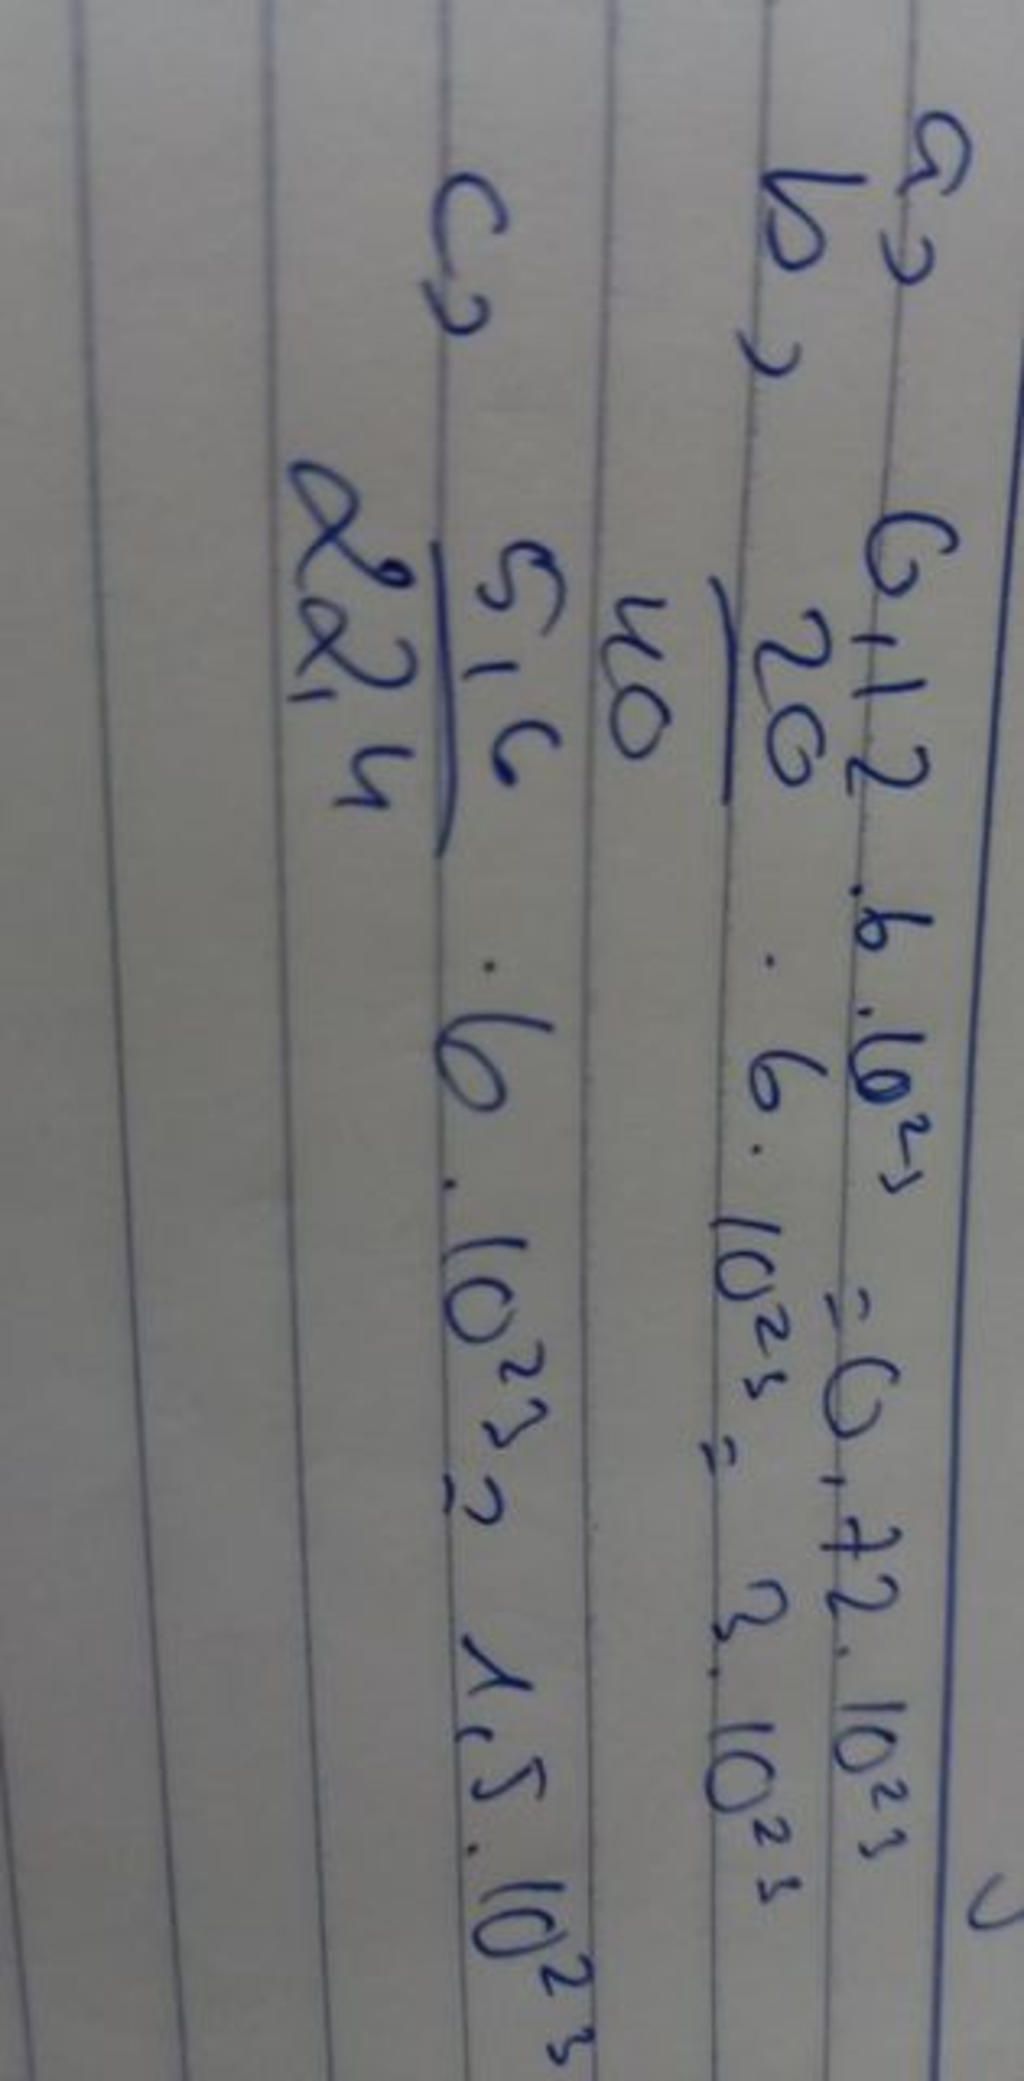 a) 0,12 . 6 . 10²³ = 0,72 . 10²³
b) 20/40 . 6 . 10²³ = 3 . 10²³
c) 5,6/22,4 . 6 . 10²³ = 1,5 . 10²³